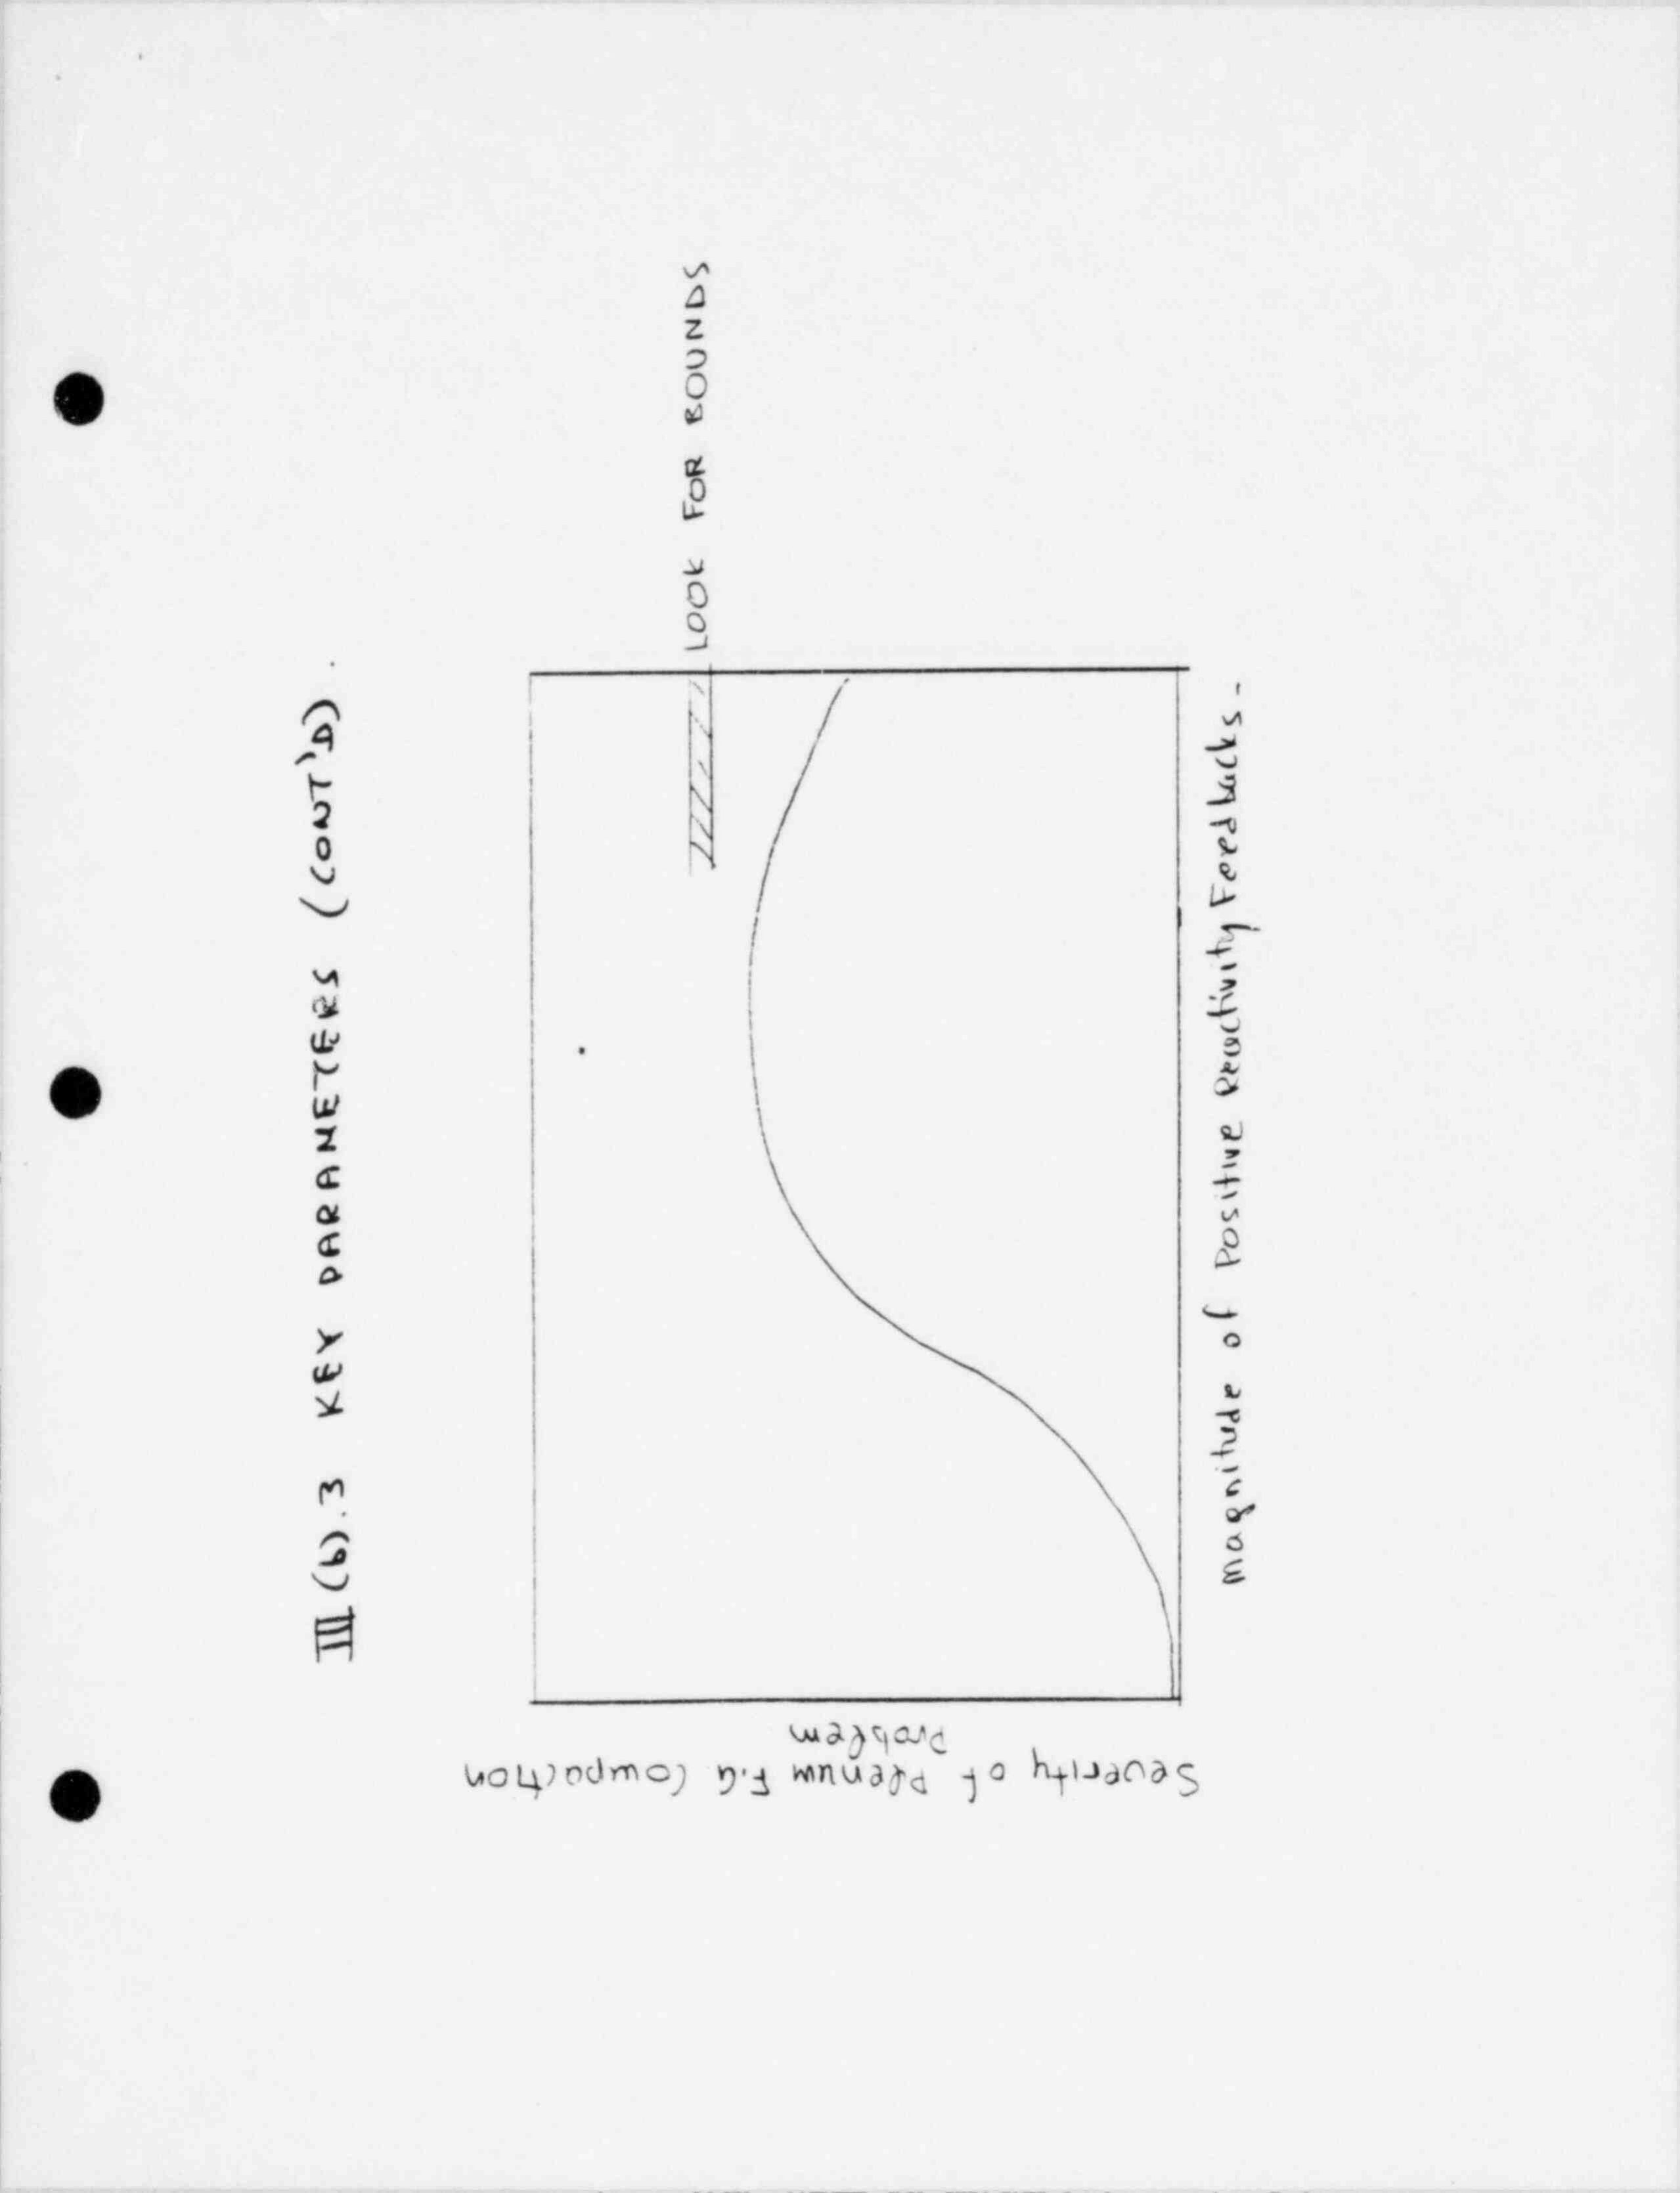 III (b).3 KEY PARAMETERS (CONT'D).
LOOK FOR BOUNDS
Severity of Plenum F.G Compaction
Problem
Magnitude of Positive Reactivity Feedbacks.